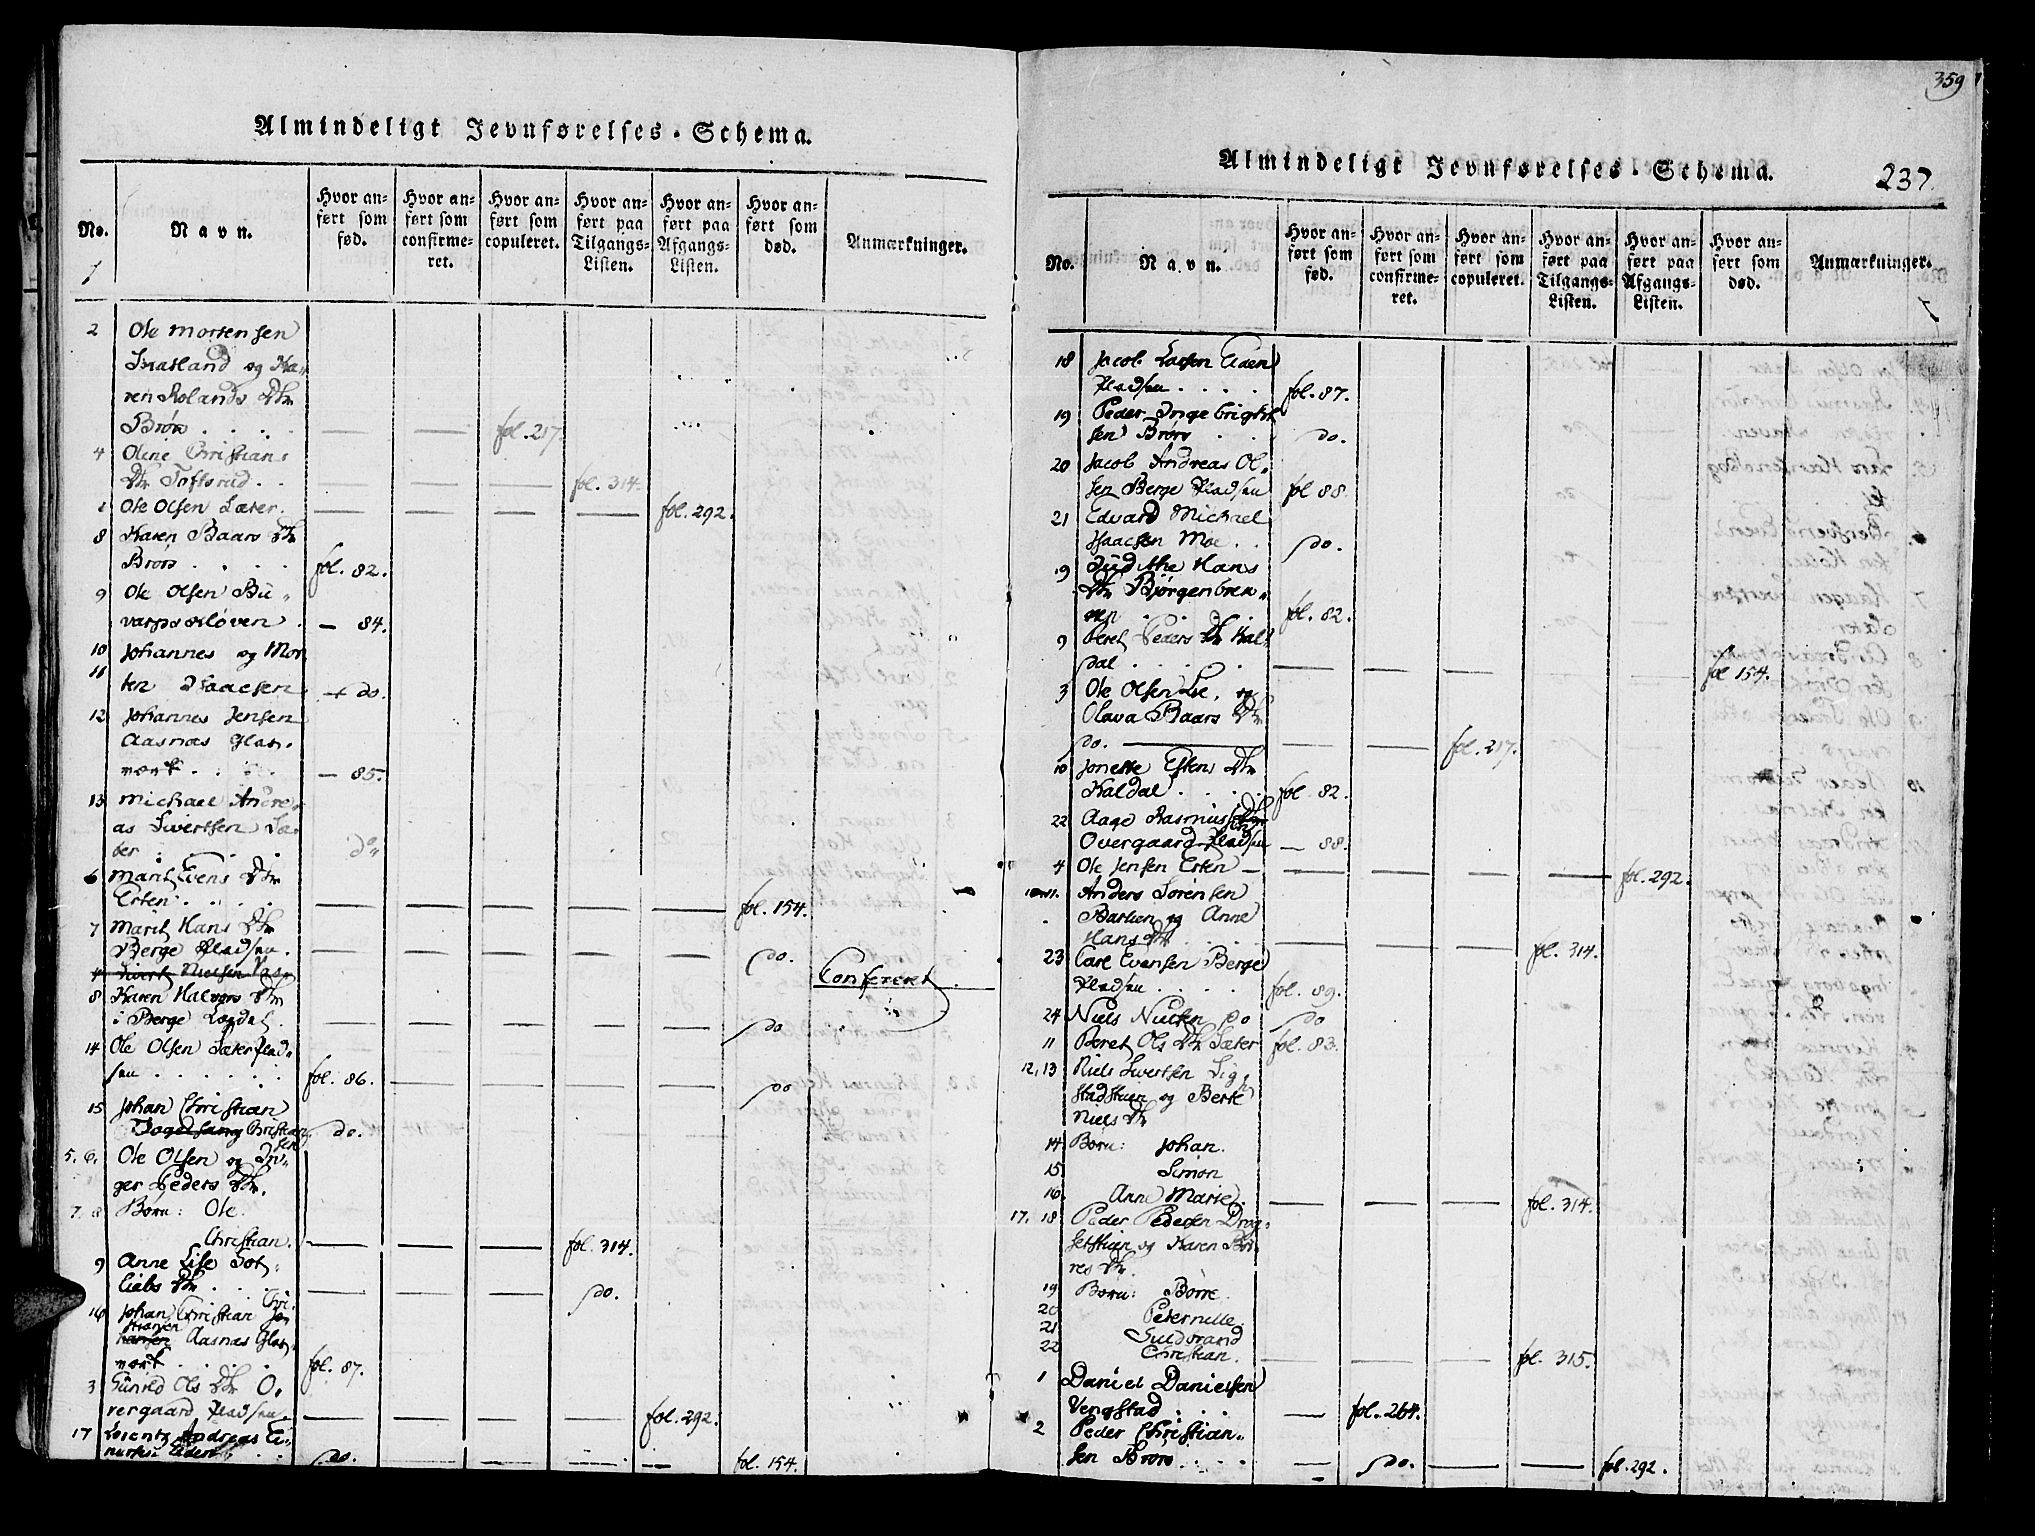 359
Almindeligt Jevnførelses-Schema.
No.
Navn.
Hvor anført som fød.
Hvor anført som confirmeret.
Hvor anført som copuleret.
Hvor anført paa Tilgangs-Listen.
Hvor anført paa Afgangs-Listen.
Hvor anført som død.
Anmærkninger.
2 Ole Mortensen
og Ka-
ren Rolands Dtr
Brøro . . . — — fol. 217.
4 Oline Christians
Dtr Toftsrud . . — — — fol. 314.
Ole Olsen Sæter. — — — — fol. 292.
8 Karen Baars Dtr
Brørs . . . . fol. 82.
9 Ole Olsen Bu-
varpskløven . — 84.
10 Johannes og Mor
11 ten Isaacsen — do.
12 Johannes Jensen
Aasnæs Glas-
værk . . . . — 85.
13 Michael Andre-
as Sivertsen Sæ-
ter . . . . do
6 Marit Evens Dtr
Esten . . . . — — — — — fol. 154.
7 Marit Hans Dtr
Berge Pladsen . — — — — — do.
4 Sivert Nielsen Confereret
8 Karen Halvors Dtr
i Berge — — — — — do
14 Ole Olsen Sæter Plad-
sen . . . . . fol. 86. — — — — do
15 Johan Christian
Vogelsang Christian-
sen do.
5. 6. Ole Olsen og In-
ger Peders Dtr.
7. 8 Børn: Ole.
Christian. — — — fol. 314.
9 Anne Lise Got-
liebs Dtr . . . — — — do.
16 Johan Christian Chri-
stiansen
hansen Aasnæs Glas-
værk . . . . fol. 87.
3 Gunild Ols Dtr O-
vergaard Pladsen. — — — — fol. 292.
17 Lorentz Andreas Ei-
narsen Eiden . . do. — — — — fol. 154.
Almindeligt Jevnførelses-Schema.
237.
No.
Navn.
Hvor anført som fød.
Hvor anført som confirmeret.
Hvor anført som copuleret.
Hvor anført paa Tilgangs-Listen.
Hvor anført paa Afgangs-Listen.
Hvor anført som død.
Anmærkninger.
18 Jacob Larsen Eiden
Pladsen . . . . fol. 87.
19 Peder Ingebrigt-
sen Brørs . . do.
20 Jacob Andreas Ol-
sen Berge Pladsen fol 88.
21 Edvard Michael
Isaacsen Moe . . do.
9 Judithe Hans
Dtr Bjørgenbren-
nen . . . . fol. 82.
9 Beret Peders Dtr Kal-
dal . . . . . — — — — — fol 154.
3 Ole Olsen Lie, og
Olava Baars Dtr
do. — — — fol. 217.
10 Jonette Estens Dtr
Kaldal . . . . fol 82.
22 Aage Rasmus
Overgaard Pladsen — 88.
4 Ole Jensen Esten — — — — — fol. 292.
10. 11. Anders Sørensen
Barlien og Anne
Hans Dtr . . . . — — — fol. 314.
23 Carl Evensen Berge
Pladsen . . . . fol. 89.
24 Niels Nielsen do do
11 Beret Ols Dtr Sæter fol. 83.
12. 13 Niels Sivertsen Sig-
stadstuen og Berte
Niels Dtr
14 Børn: Johan.
15 Simon
16. Anne Marie. — — — fol. 314.
17. 18 Peder Pedersen Drag-
setstuen og Karen Bør-
res Dtr.
19 Børn: Børre.
20 Peternille.
21 Guldbrand
22 Christian. — — — fol. 315.
1 Daniel Danielsen
Vengstad . . . — fol. 264.
2 Peder Christian-
sen Brørs . . . — do. — — fol. 292.